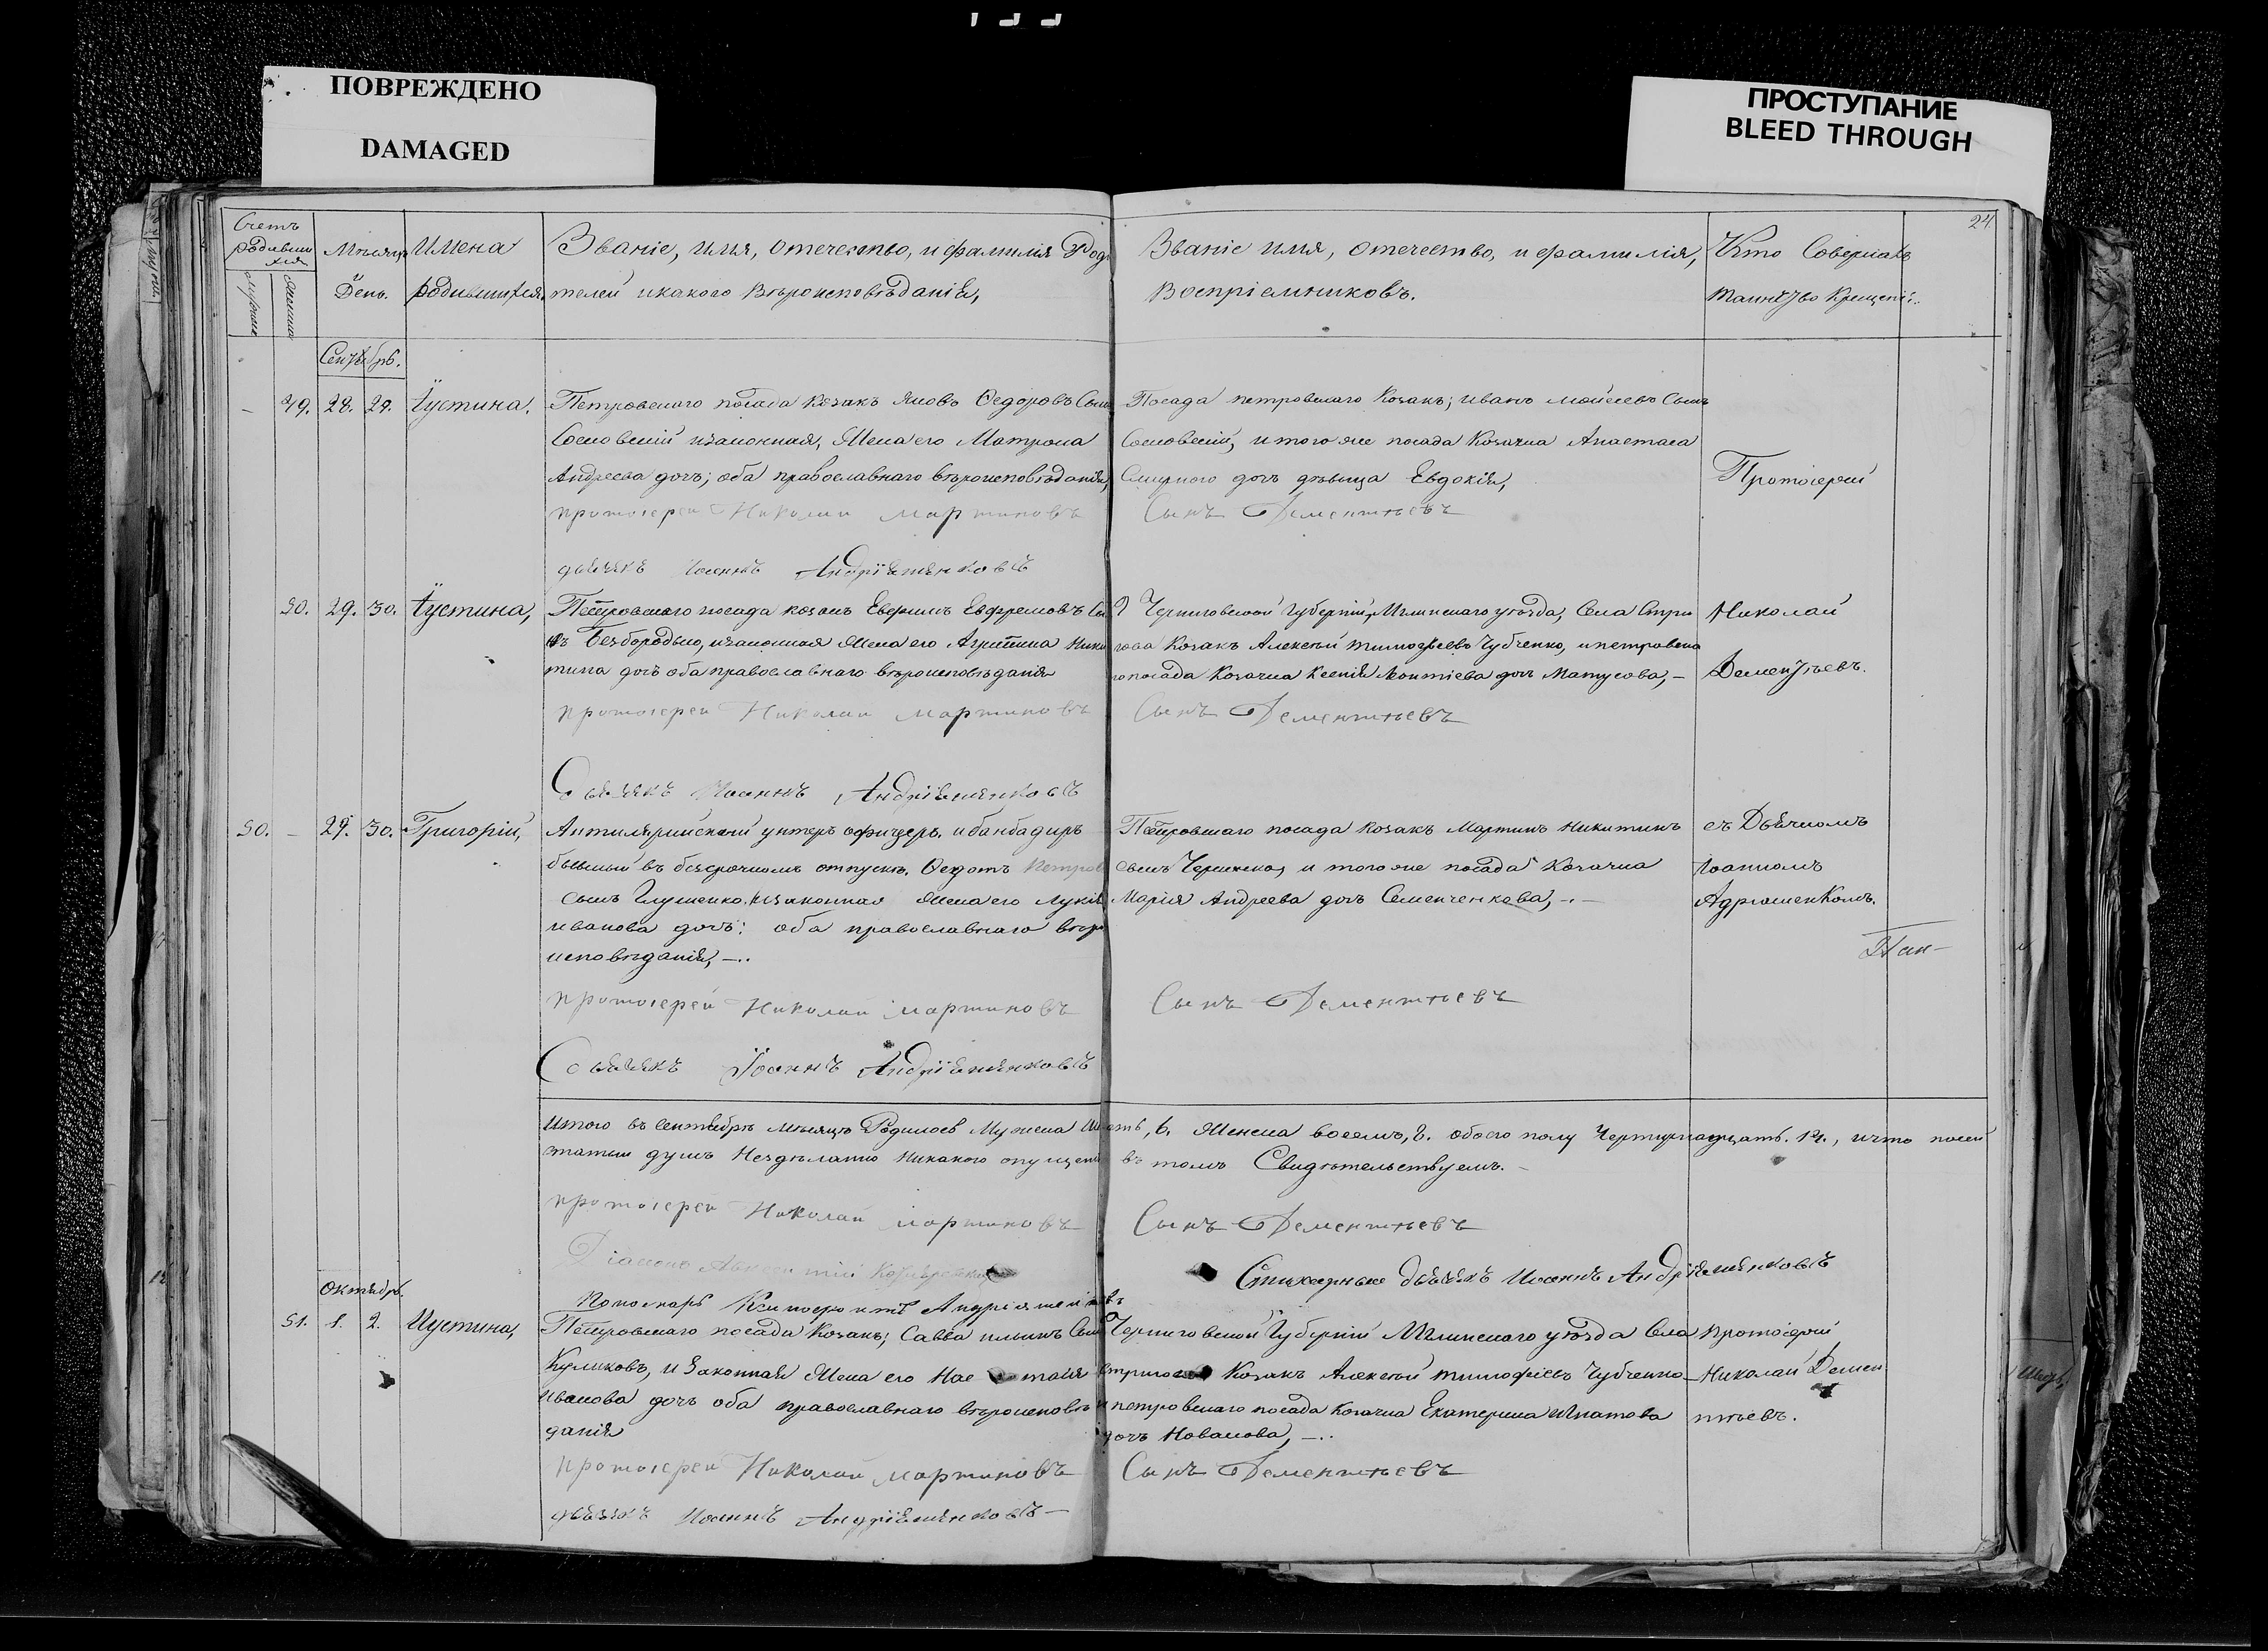 ПОВРЕЖДЕНО
DAMAGED
ПРОСТУПАНИЕ
BLEED THROUGH
24.
Счетъ родившихся
Мѣсяцъ День.
Имена родившихся.
Званіе, имя, отечество, и фамилія Роди
телей и какого вѣроисповѣданія,
Званіе имя, отечество, и фамилія,
Воспріемниковъ.
Кто Совершалъ
таинство Крещенія.
Сентябрь.
49. 28. 29. Іустина.
Петровскаго посада козакъ Яковъ Ѳедоровъ Сынъ
Сосновскій и законная, Жена его Матрона
Андреева дочь; оба православнаго вѣроисповѣданія,
Посада петровскаго Козакъ; иванъ мойсеевъ Сынъ
Сосновскій, и того же посада Козачка Анастаса
Смирного дочь дѣвица Евдокія,
Протоіерей
протоіерей Николай Мартиновъ
Сынъ Дементьевъ
дьячекъ Иоаннъ Андріяшенковъ
50. 29. 30. Іустина,
Петровскаго посада козакъ Евфимъ Евфремовъ Сы
нъ Безбородько, и законная Жена его Агрипина Ники
тина дочь оба православнаго вѣроисповѣданія
Черниговской Губерніи, Мглинскаго уѣзда, Села Стри
гова Козакъ Алексѣй тимофѣевъ Чубченко, и петровска
го посада Козачка Ксенія Леонтіева дочь Матусова, —
Николай
Дементьевъ.
протоіерей Николай Мартиновъ
Сынъ Дементьевъ
Дьячекъ Иоаннъ Андріяшенковъ
50. — 29. 30. Григорій,
Антилярийскаій унтеръ офицеръ, и банбадиръ
бывшый въ безсрочномъ отпуске, Ѳедотъ Петров
сынъ Глушенко, и законная Жена его Лукія
иванова дочь: оба православнаго вѣро
исповѣданія, —..
Петровскаго посада козакъ Мартинъ Никитинъ
сынъ и того же посада Козачка
Марія Андреева дочь Семенченкова, —.—
съ Дьячкомъ
Іоанномъ
Адріяшенкомъ.
протоіерей Николай Мартиновъ
Сынъ Дементьевъ
Дьячекъ Іоаннъ Андріяшенковъ
Итого въ Сентябрѣ мѣсяцѣ Родилось Мужеска Шесть, 6. Женска восемъ, 8. обоего полу Чертырнадцать. 14., и что по сей
статьи думъ Нездѣланно Никакого опущенія въ томъ Свидѣтельствуемъ.
протоіерей Николай Мартиновъ
Сынъ Дементьевъ
Діаконъ
Стихарный дьячекъ Иоаннъ Андріяшенковъ
Пономарь
октябрь.
51. 1. 2. Иустина,
Петровскаго посада Козакъ; Савва ильинъ Сынъ
Куликовъ, и Законная Жена его
Иванова дочь оба православнаго вѣроисповѣ
данія
Черниговской Губерніи Мглинскаго уѣзда Села
Козакъ Алексѣй тимофѣевъ Чубченко
и петровскаго посада козачка Екатерина Ипатова
дочь Новакова, —..
протоіерей
Николай Демен
тьевъ.
протоіерей Николай Мартиновъ
Сынъ Дементьевъ
дьячекъ Иоаннъ Андріяшенковъ —